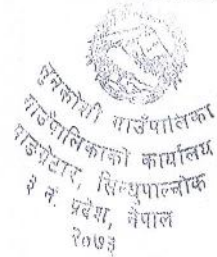 सुनकोशी गाउँपालिका
गाउँपालिकाको कार्यालय
पाङ्गरेटार, सिन्धुपाल्चोक
३ नं. प्रदेश, नेपाल
२०७३